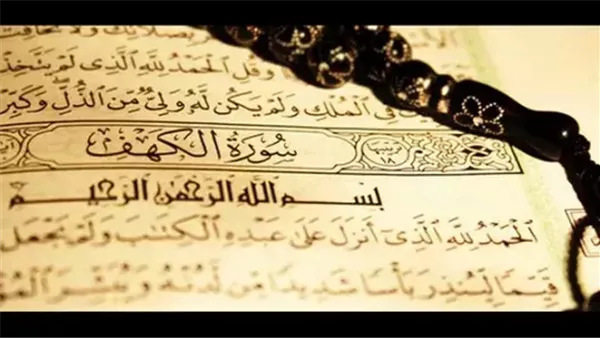 بِصَلَاتِكَ وَلَا تُخَافِتْ
وَقُلِ ٱلْحَمْدُ لِلَّهِ ٱلَّذِى لَمْ يَتَّخِذْ
فِى ٱلْمُلْكِ وَلَمْ يَكُن لَّهُۥ وَلِىٌّ مِّنَ ٱلذُّلِّ ۖ وَكَبِّرْ
ترتيبها ١٨ سُورَةُ الكَهْفِ
بِسْمِ اللهِ الرَّحْمَٰنِ الرَّحِيمِ
ٱلْحَمْدُ لِلَّهِ ٱلَّذِىٓ أَنزَلَ عَلَىٰ عَبْدِهِ ٱلْكِتَٰبَ وَلَمْ يَجْعَل
قَيِّمًا لِّيُنذِرَ بَأْسًا شَدِيدًا مِّن لَّدُنْهُ وَيُبَشِّرَ ٱلْمُؤْ